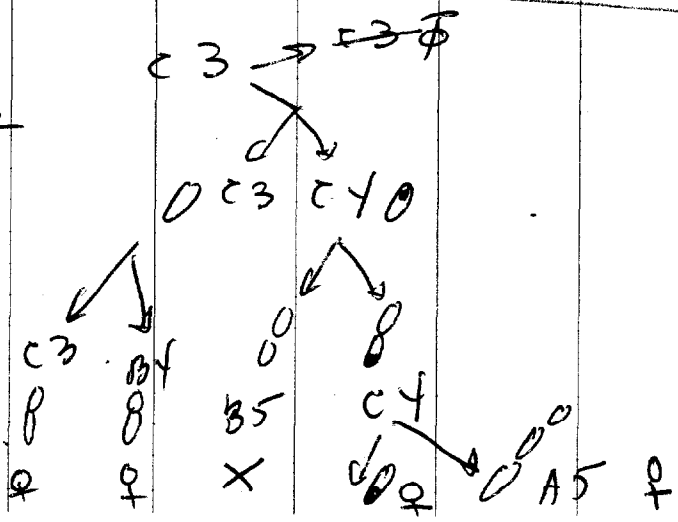 C3
C3 C4
C3 B4
B5 C4
♀ ♀ X ♀ A5 ♀